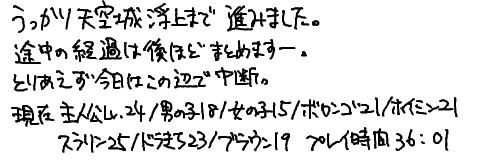 うっかり天空城浮上まで進みました。
途中の経過は後ほどまとめますー。
とりあえず今日はこの辺で中断。
現在 主人公Lv.24/男の子18/女の子15/ボロンゴ21/ホイミン21
スラリン25/ドラきち23/ブラウン19 プレイ時間36:01